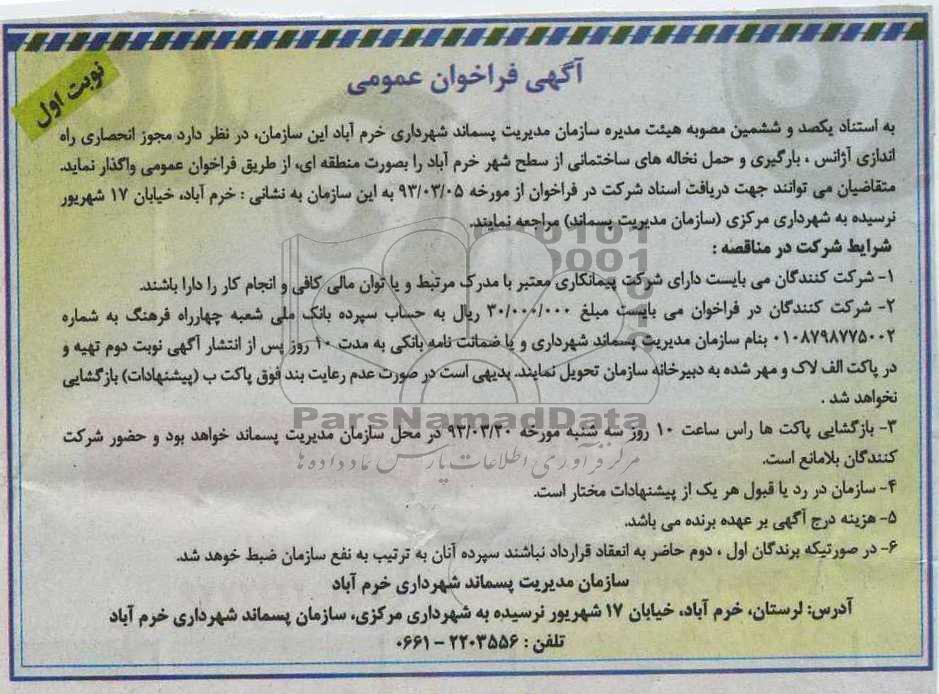 آگهی فراخوان عمومی
نوبت اول
به استناد یکصد و ششمین مصوبه هیئت مدیره سازمان مدیریت پسماند شهرداری خرم آباد این سازمان، در نظر دارد مجوز انحصاری راه
اندازی آژانس ، بارگیری و حمل نخاله های ساختمانی از سطح شهر خرم آباد را بصورت منطقه ای، از طریق فراخوان عمومی واگذار نماید.
متقاضیان می توانند جهت دریافت اسناد شرکت در فراخوان از مورخه ۹۳/۰۳/۰۵ به این سازمان به نشانی : خرم آباد، خیابان ۱۷ شهریور
نرسیده به شهرداری مرکزی (سازمان مدیریت پسماند) مراجعه نمایند.
شرایط شرکت در مناقصه :
۱- شرکت کنندگان می بایست دارای شرکت پیمانکاری معتبر با مدرک مرتبط و یا توان مالی کافی و انجام کار را دارا باشند.
۲- شرکت کنندگان در فراخوان می بایست مبلغ ۳۰/۰۰۰/۰۰۰ ریال به حساب سپرده بانک ملی شعبه چهارراه فرهنگ به شماره
۰۱۰۸۷۹۸۷۷۵۰۰۲ بنام سازمان مدیریت پسماند شهرداری و یا ضمانت نامه بانکی به مدت ۱۰ روز پس از انتشار آگهی نوبت دوم تهیه و
در پاکت الف لاک و مهر شده به دبیرخانه سازمان تحویل نمایند. بدیهی است در صورت عدم رعایت بند فوق پاکت ب (پیشنهادات) بازگشایی
نخواهد شد .
۳- بازگشایی پاکت ها راس ساعت ۱۰ روز سه شنبه مورخه ۹۳/۰۳/۲۰ در محل سازمان مدیریت پسماند خواهد بود و حضور شرکت
کنندگان بلامانع است.
۴- سازمان در رد یا قبول هر یک از پیشنهادات مختار است.
۵- هزینه درج آگهی بر عهده برنده می باشد.
۶- در صورتیکه برندگان اول ، دوم حاضر به انعقاد قرارداد نباشند سپرده آنان به ترتیب به نفع سازمان ضبط خوهد شد.
سازمان مدیریت پسماند شهرداری خرم آباد
آدرس: لرستان، خرم آباد، خیابان ۱۷ شهریور نرسیده به شهرداری مرکزی، سازمان پسماند شهرداری خرم آباد
تلفن : ۲۲۰۳۵۵۶ - ۰۶۶۱
ParsNamadData
مرکز فرآوری اطلاعات پارس نماد داده ها